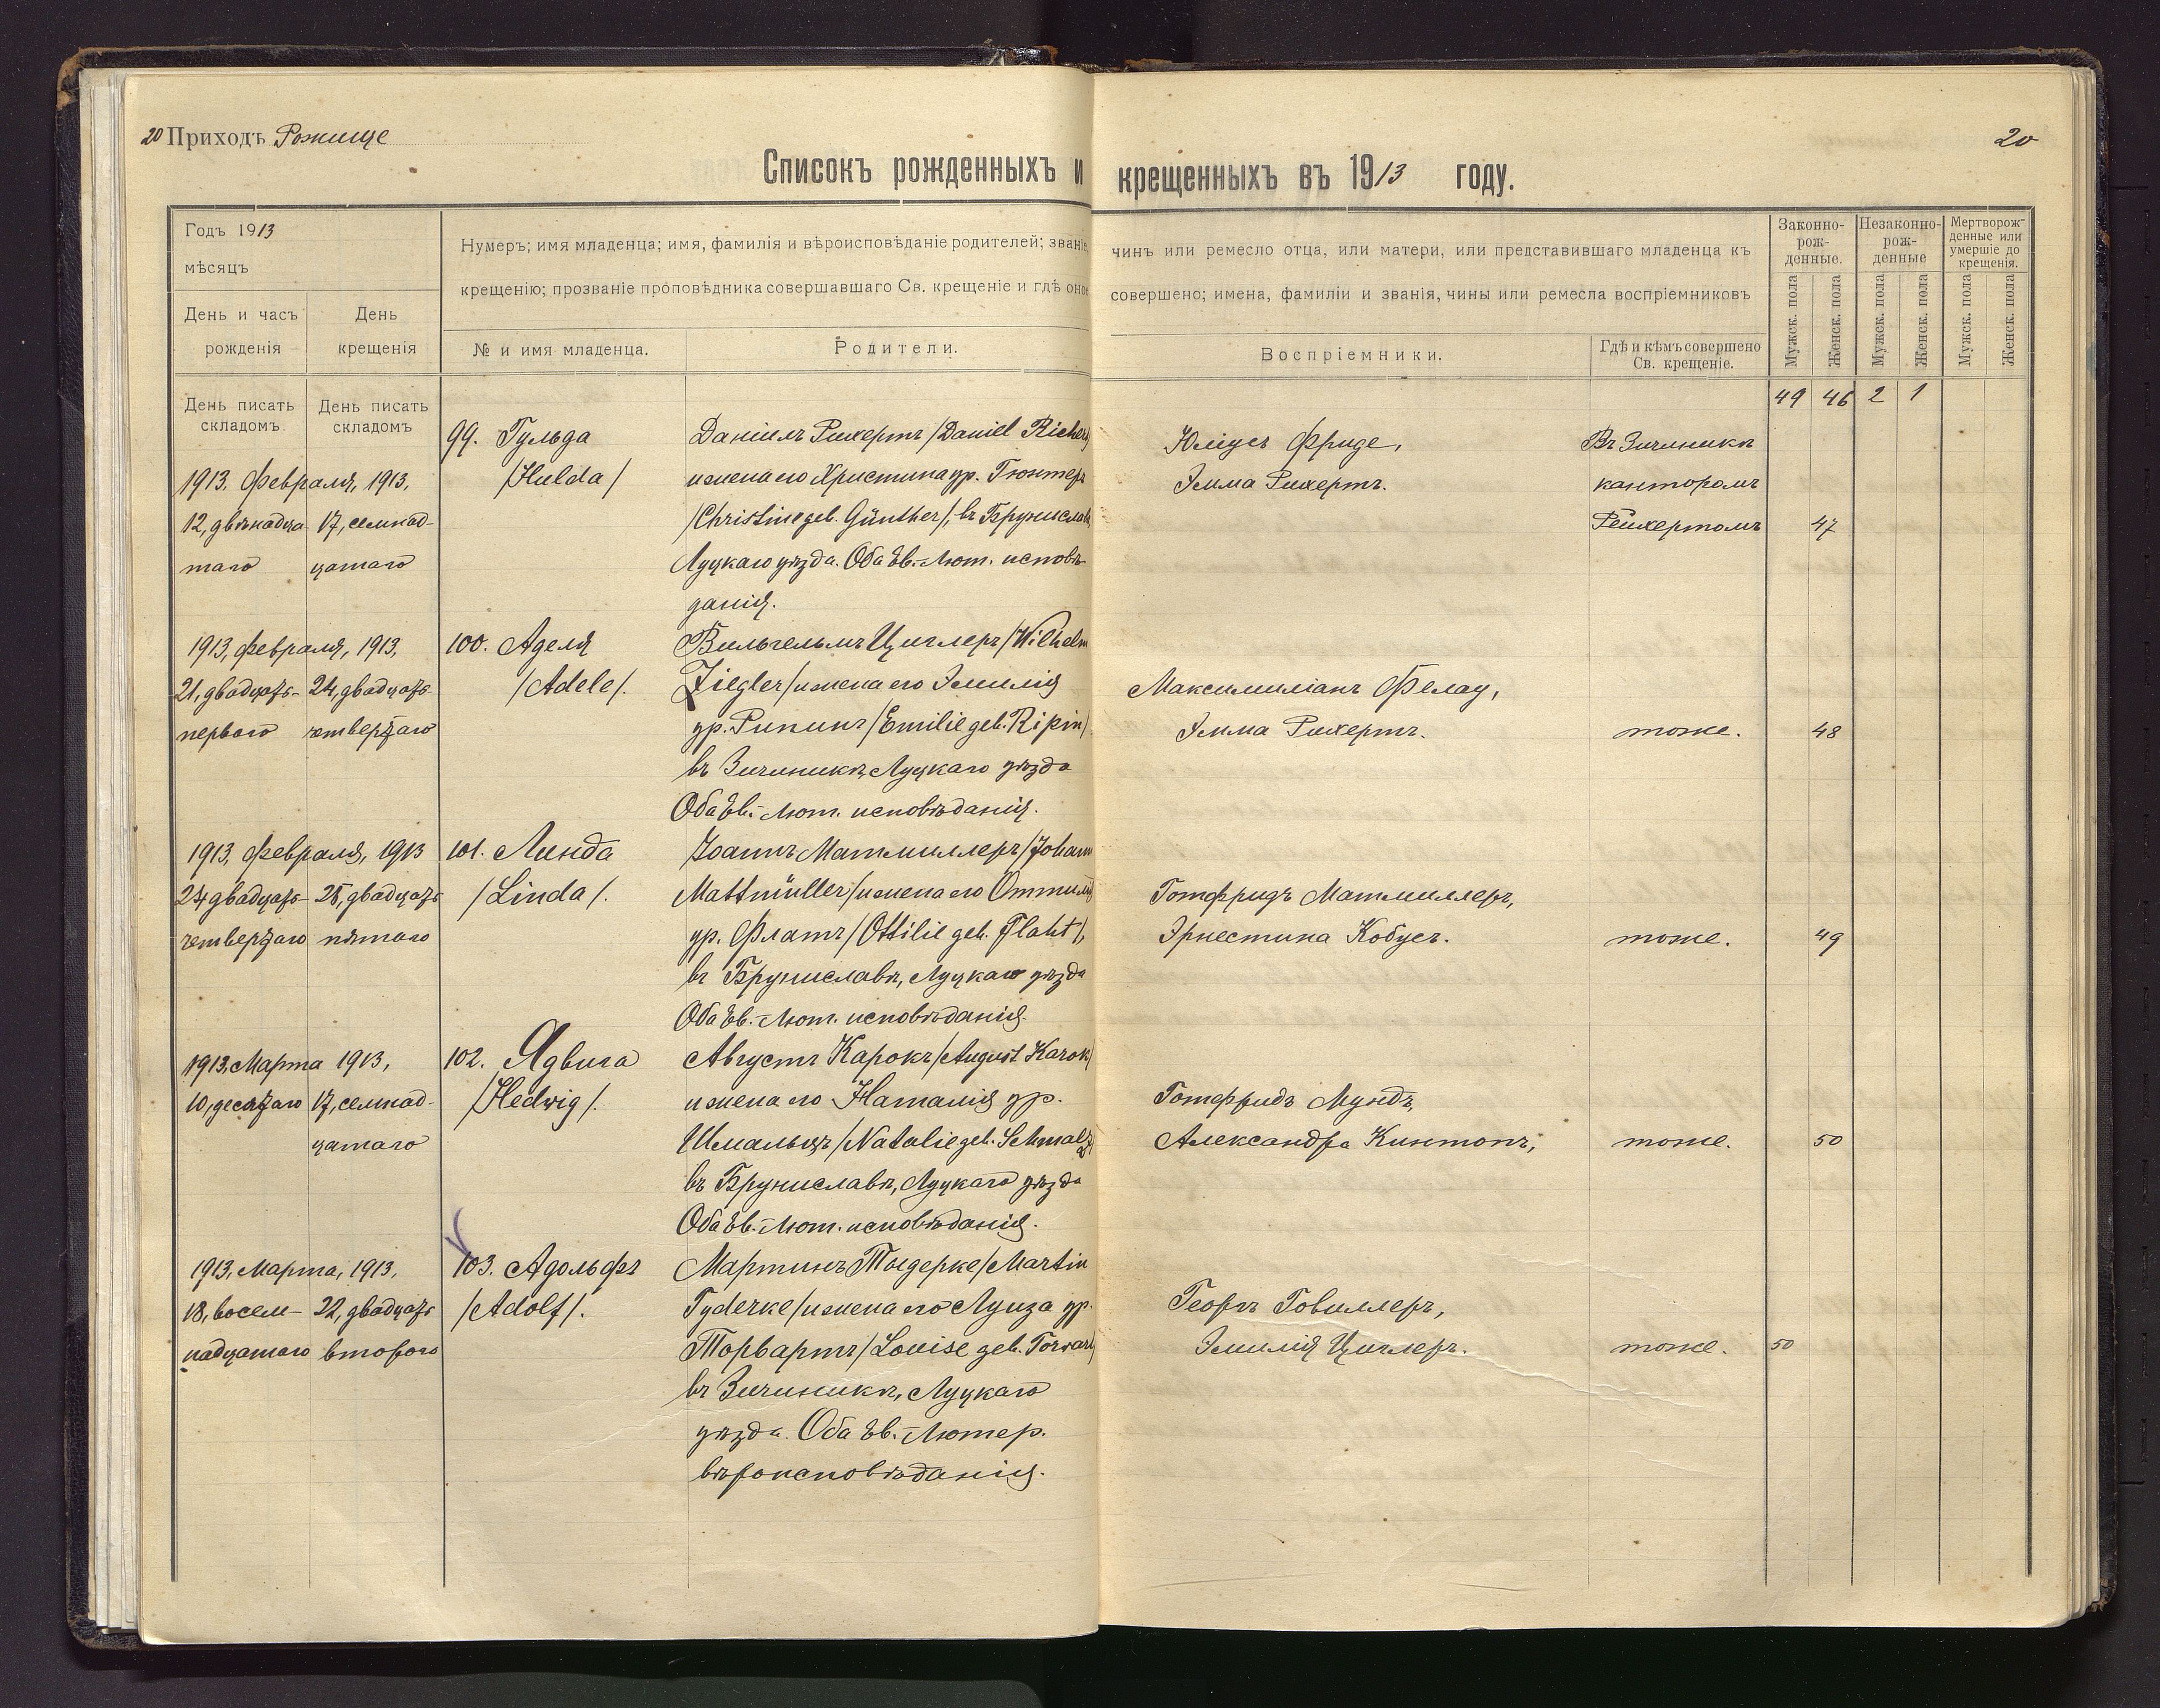 20 Приходъ Рожище
20
Списокъ рожденныхъ и крещенныхъ въ 1913 году.
Годъ 1913
мѣсяцъ
День и часъ рожденія
День крещенія
Нумеръ; имя младенца; имя, фамилія и вѣроисповѣданіе родителей; званіе, чинъ или ремесло отца, или матери, или представившаго младенца къ
крещенію; прозваніе проповѣдника совершавшаго Св. крещеніе и гдѣ оное совершено; имена, фамиліи и званія, чины или ремесла воспріемниковъ
№ и имя младенца.
Родители.
Воспріемники.
Гдѣ и кѣмъ совершено
Св. крещеніе.
Законно-
рож-
денные.
Незаконно-
рож-
денные
Мертворож-
денные или
умершіе до
крещенія.
Мужск. пола
Женск. пола
Мужск. пола
Женск. пола
Мужск. пола
Женск. пола
День писать
складомъ
День писать
складомъ
49 46 2 1
1913, Февраля, 1913,
12, двѣнадца- 17, семнад-
таго цатаго
99. Гульда
/Hulda/
Даніилъ Рихертъ /Daniel Richert/
и жена его Христина ур. Гюнтеръ
/Christine geb. Günther/, въ Бруниславѣ
Луцкаго уѣзда. Оба Ев.-Лют. исповѣ-
данія.
Юліусъ Фриде,
Эмма Рихертъ.
Въ Зичиникѣ
канторомъ
Рейхертомъ
47
1913, Февраля, 1913,
21, двадцать- 24, двадцать-
перваго четвертаго
100. Аделя
/Adele/.
Вильгельмъ Циглеръ /Wilhelm
Ziegler/ и жена его Эмилія
ур. Рипинъ /Emilie geb. Ripin/
въ Зичиникѣ, Луцкаго уѣзда
Оба Ев.-Лют. исповѣданія.
Максимиліанъ Фелау,
Эмма Рихертъ.
тоже.
48
1913, Февраля, 1913
24 двадцать- 25, двадцать
четвертаго пятаго
101. Линда
/Linda/.
Іоаннъ Матмиллеръ /Johann
Mattmüller/ и жена его Оттилія
ур. Флатъ /Ottilie geb. Flaht/,
въ Бруниславѣ, Луцкаго уѣзда
Оба Ев.-Лют. исповѣданія.
Готфридъ Матмиллеръ,
Эрнестина Кобусъ.
тоже.
49
1913, Марта 1913,
10, десятаго 17, семнад-
цатаго
102. Ядвига
/Hedwig/.
Августъ Карокъ /August Karok/
и жена его Наталія ур.
Шмальцъ /Natalie geb. Schmalz/
въ Бруниславѣ, Луцкаго уѣзда
Оба Ев.-Лют. исповѣданія.
Готфридъ Мундъ,
Александра Кинтопъ,
тоже.
50
1913, Марта, 1913,
18, восем- 22, двадцать
надцатаго второго
103. Адольфъ
/Adolf/.
Мартинъ Тыдерке /Martin
Tyderke/ и жена его Луиза ур.
Торвартъ /Louise geb. Torwart/
въ Зичиникѣ, Луцкаго
уѣзда. Оба Ев.-Лютер.
вѣроисповѣданія.
Георгъ Говиллеръ,
Эмилія Циглеръ.
тоже.
50